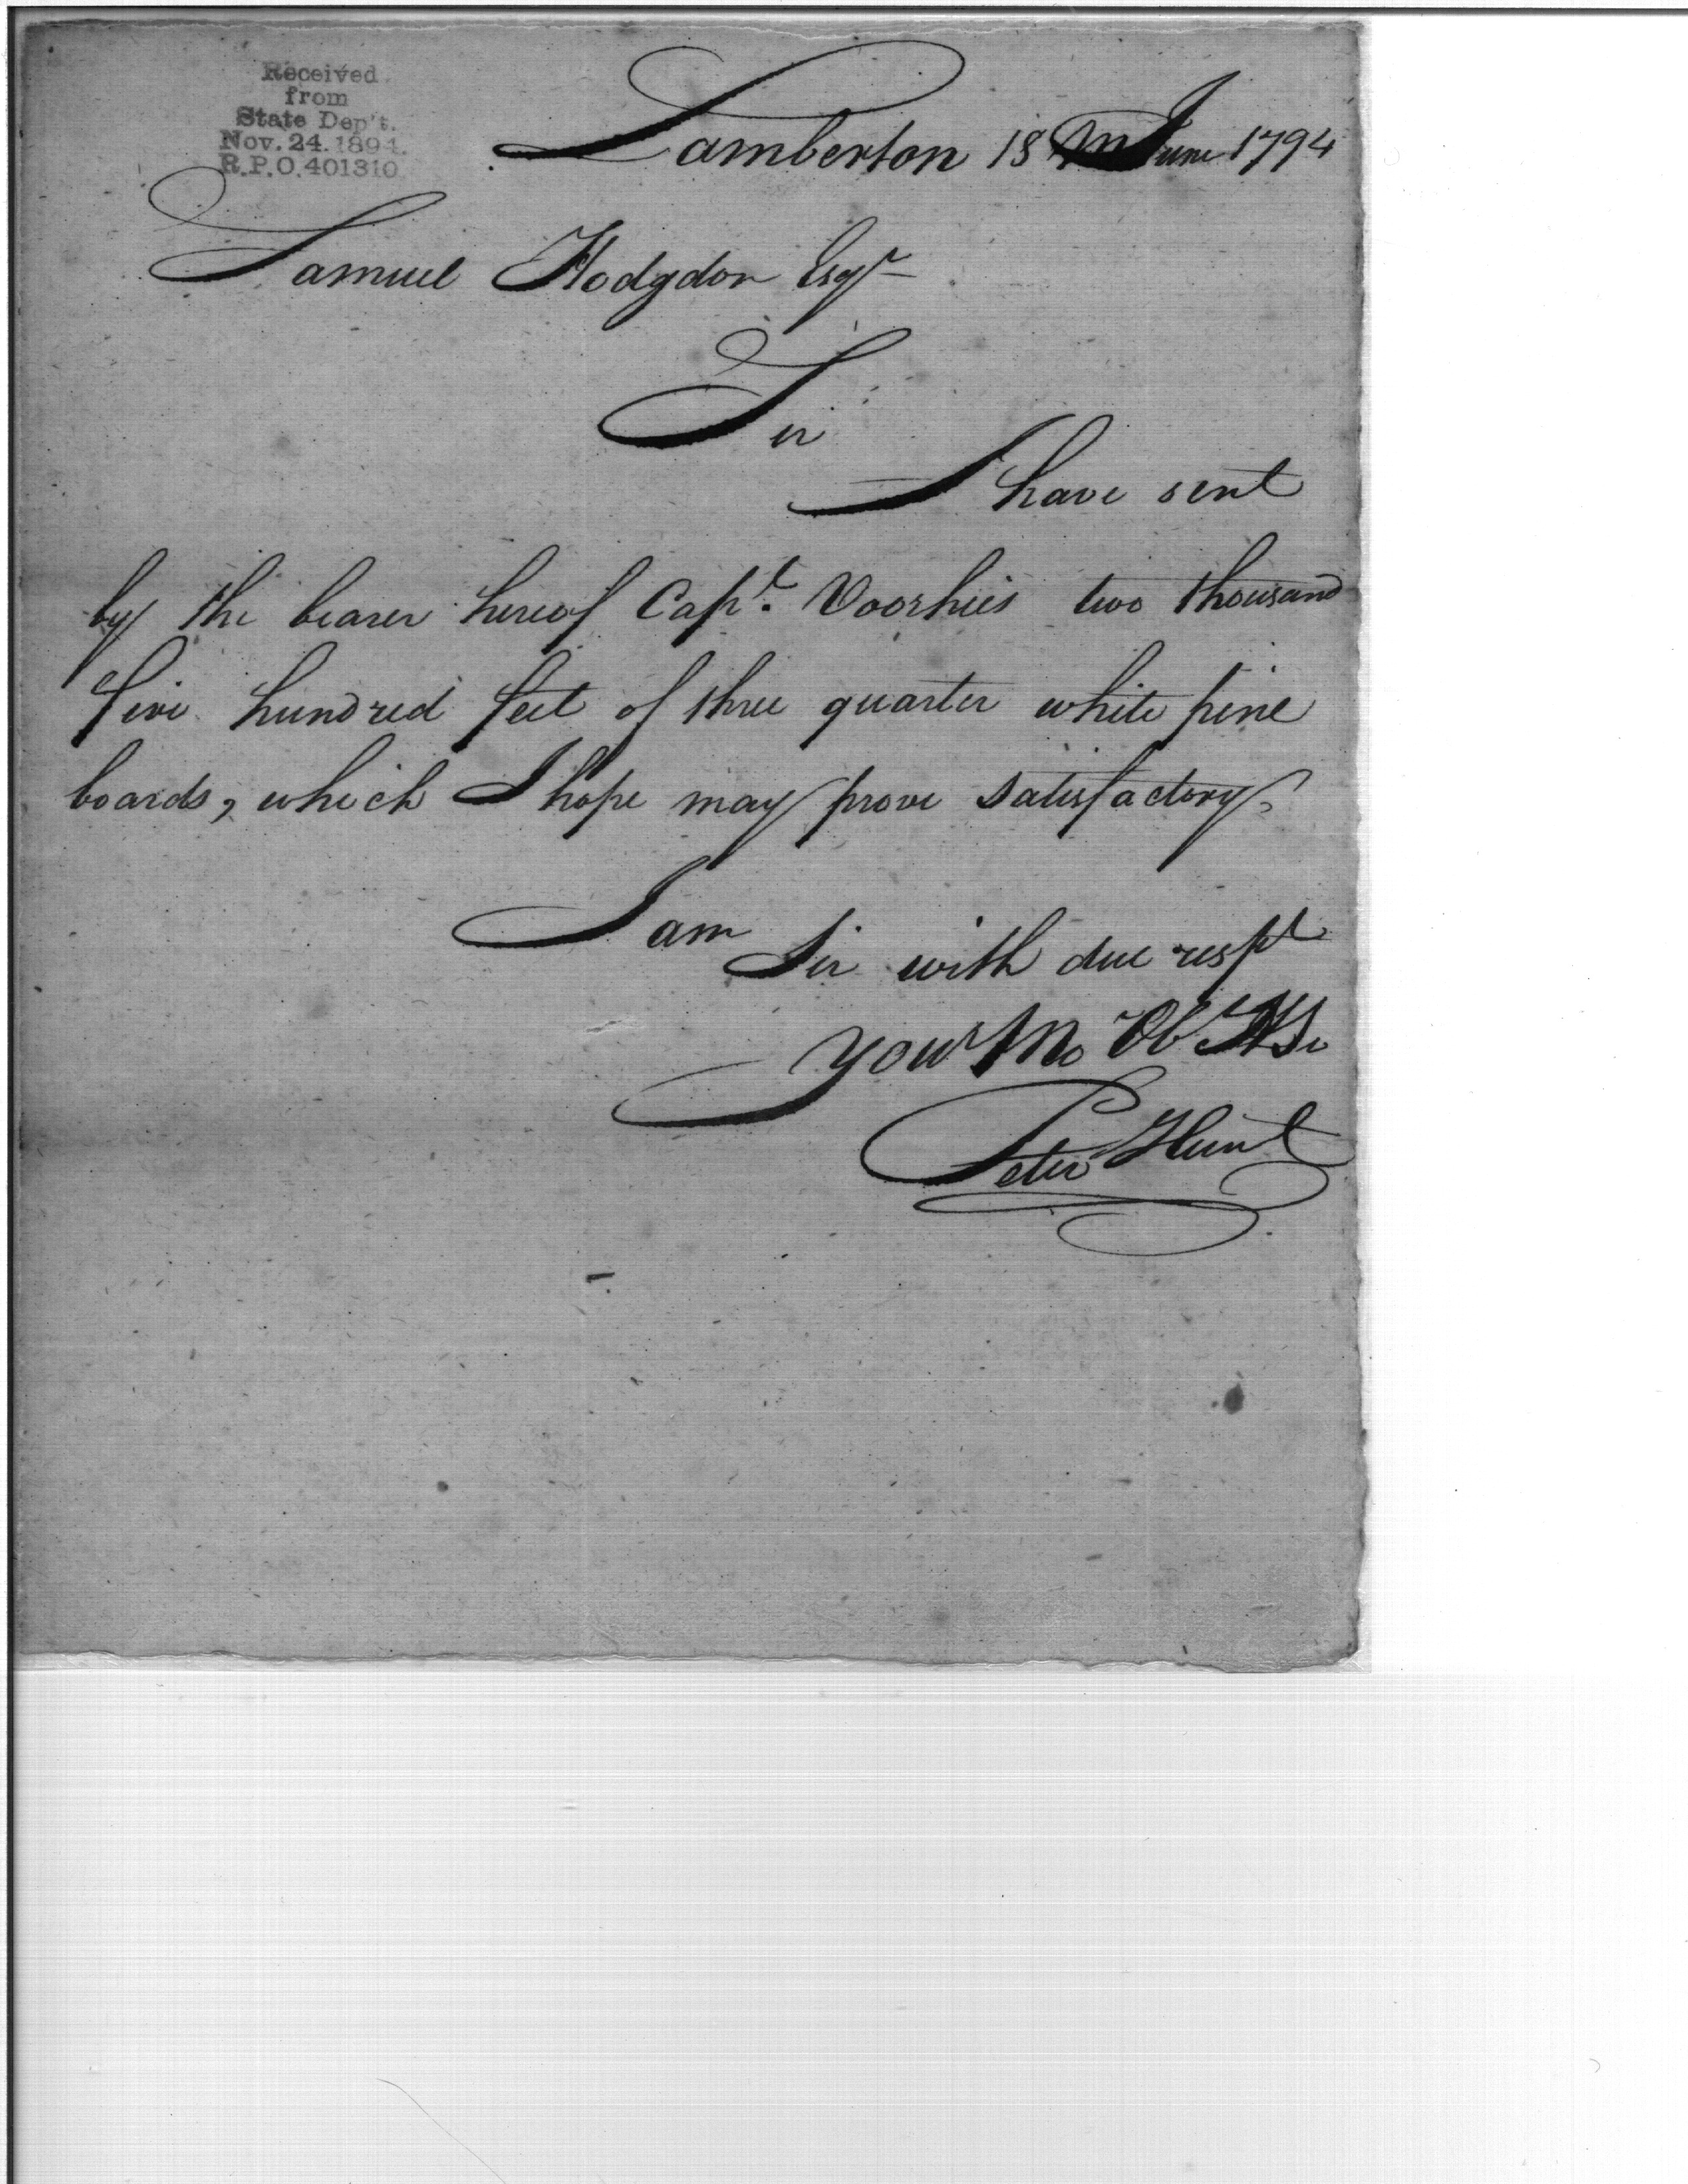 Received
from
State Dep't.
Nov. 24. 1894.
R.P.O. 401310
Lamberton 18 June 1794
Samuel Hodgdon Esqr
Sir
I have sent
by the bearer hereof Capt. Voorhies two thousand
five hundred feet of three quarter white pine
boards, which I hope may prove satisfactory
I am
Sir with due respt
your Mo Ob HSr
Peter Hunt